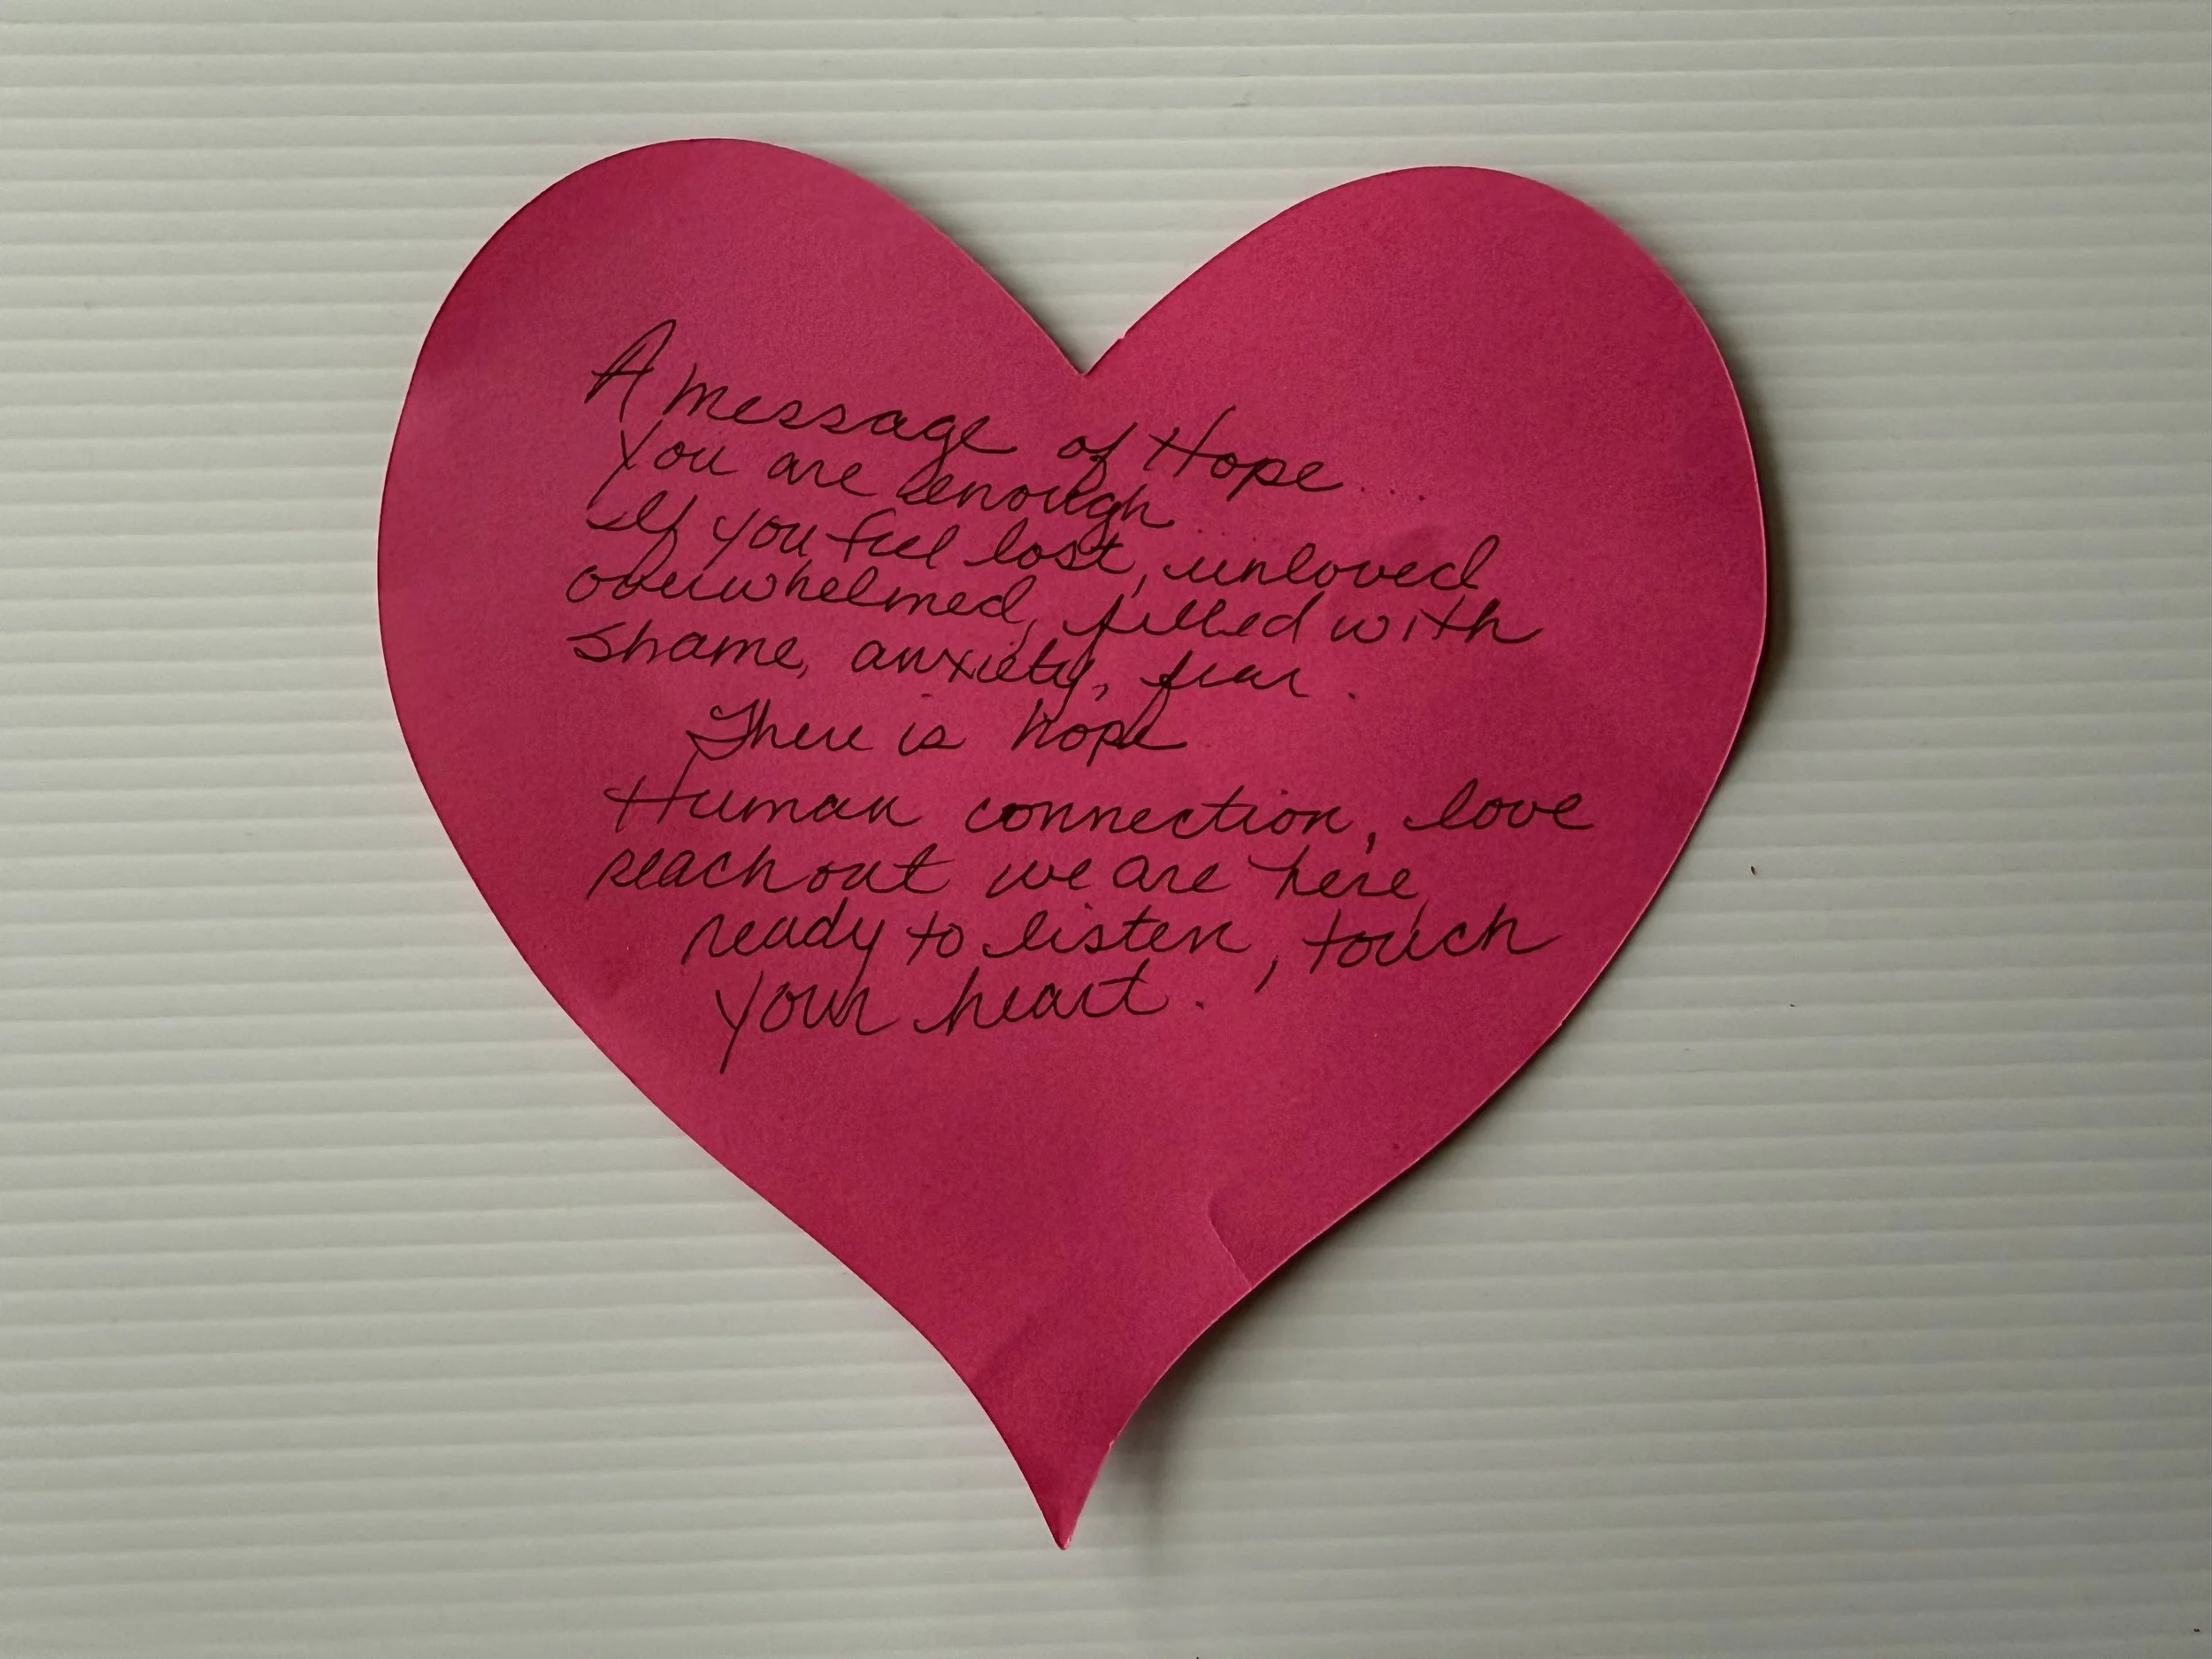 A message of Hope....
You are enough
If you feel lost, unloved
overwhelmed, filled with
shame, anxiety, fear.
There is hope
Human connection, love
reach out we are here,
ready to listen, touch
your heart.